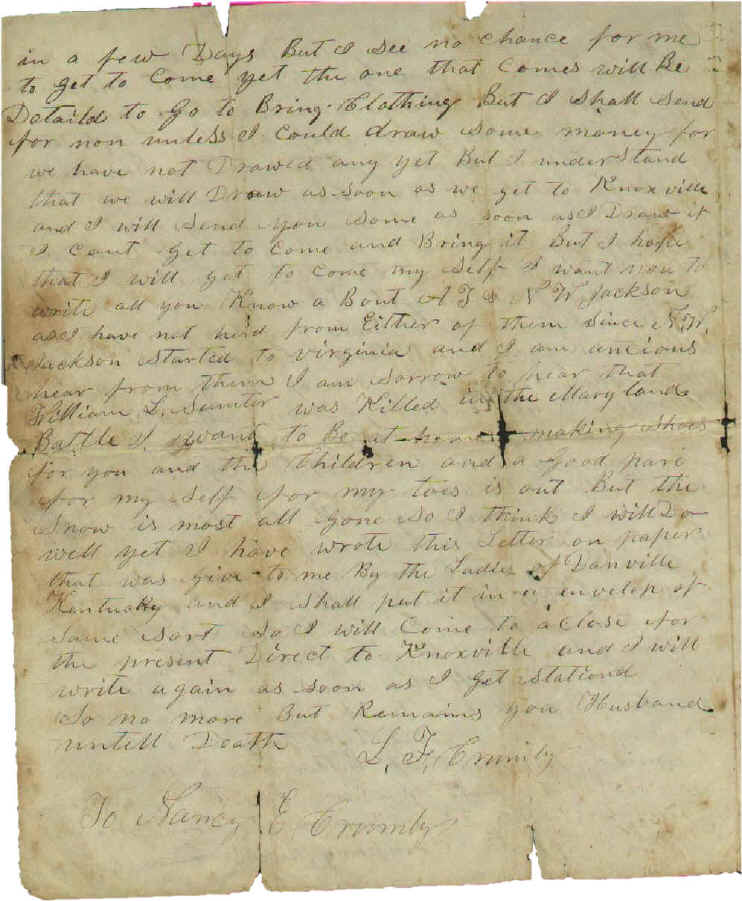 in a few Days But I see no chance for me
to get to Come yet the one that Comes will Be
Detaild to Go to Bring Clothing But I shall send
for non unless I Could draw some money for
we have not Drawed any yet But I understand
that we will Draw as soon as we get to Knoxville
and I will send you some as soon as I Draw if
I Cant get to Come and Bring it But I hope
that I will get to Come my self I want you to
write all you Know a Bout A J & N W Jackson
as I have not herd from Either of them since N. W.
Jackson started to virginia and I am ancious
hear from them I am sorrow to hear that
William L. Sumter was Killed in the Maryland
Battle I want to Be at home making shoes
for you and the Children and a Good pare
for my self for my toes is out But the
Snow is most all gone so I think I will Do
well yet I have wrote this Letter on paper
that was give to me By the Ladies of Danville
Kentucky and I shall put it in a envelop of
same sort So I will Come to a Close for
the present Direct to Knoxville and I will
write again as soon as I get stationd
So no more But Remains you Husband
untell Death
L. F. Crumly
To Nancy E Crumly